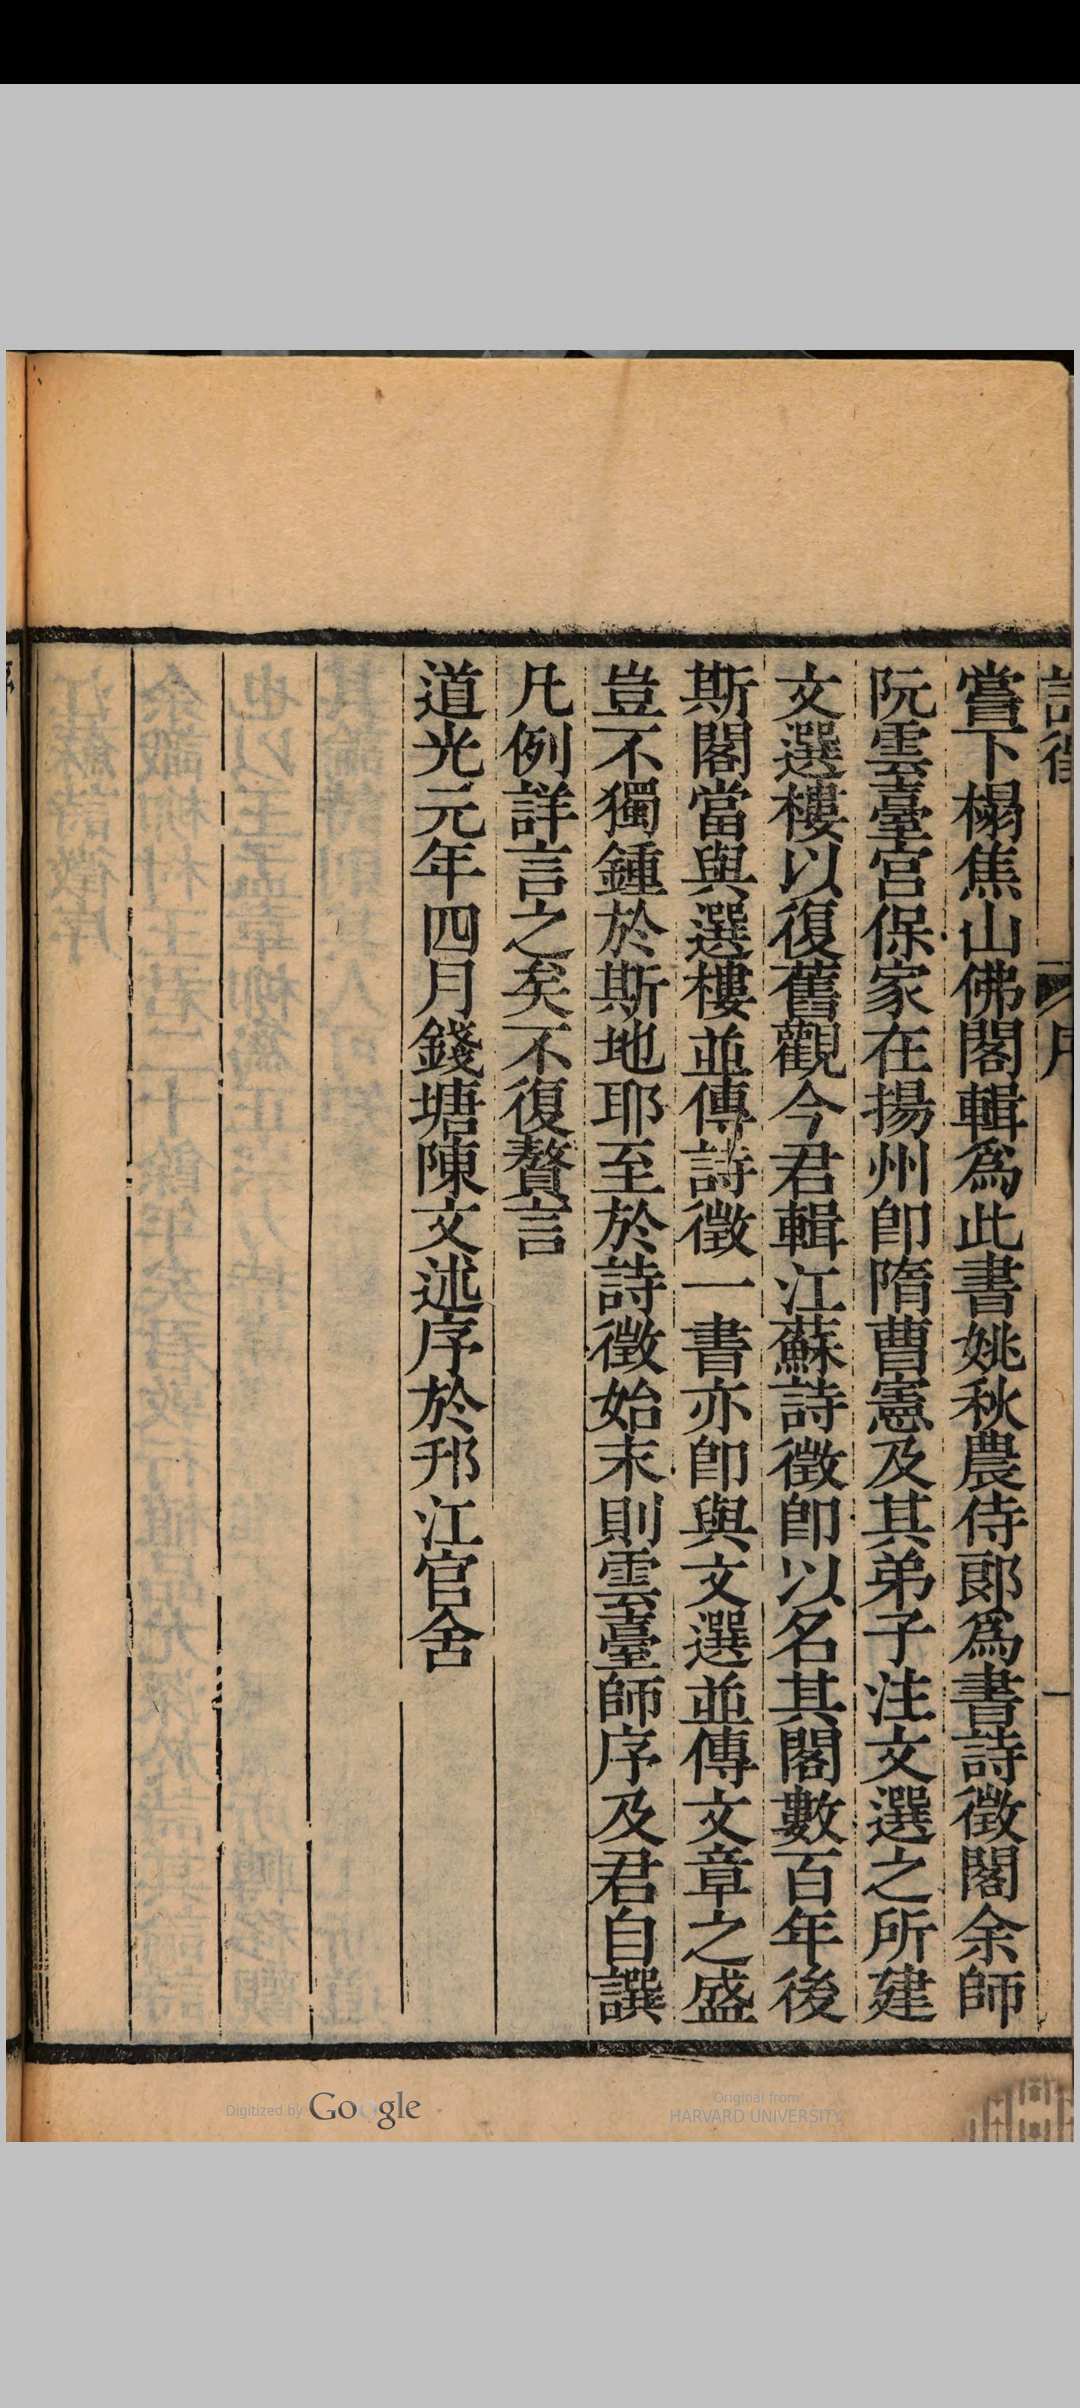 嘗下榻焦山佛閣輯爲此書姚秋農侍郎爲書詩徵閣余師
阮雲臺宮保家在揚州卽隋曹憲及其弟子注文選之所建
文選樓以復舊觀今君輯江蘇詩徵卽以名其閣數百年後
斯閣當與選樓並傳詩徵一書亦卽與文選並傳文章之盛
豈不獨鍾於斯地耶至於詩徵始末則雲臺師序及君自譔
凡例詳言之矣不復贅言
道光元年四月錢塘陳文述序於邗江官舍
Digitized by Google
Original from
HARVARD UNIVERSITY